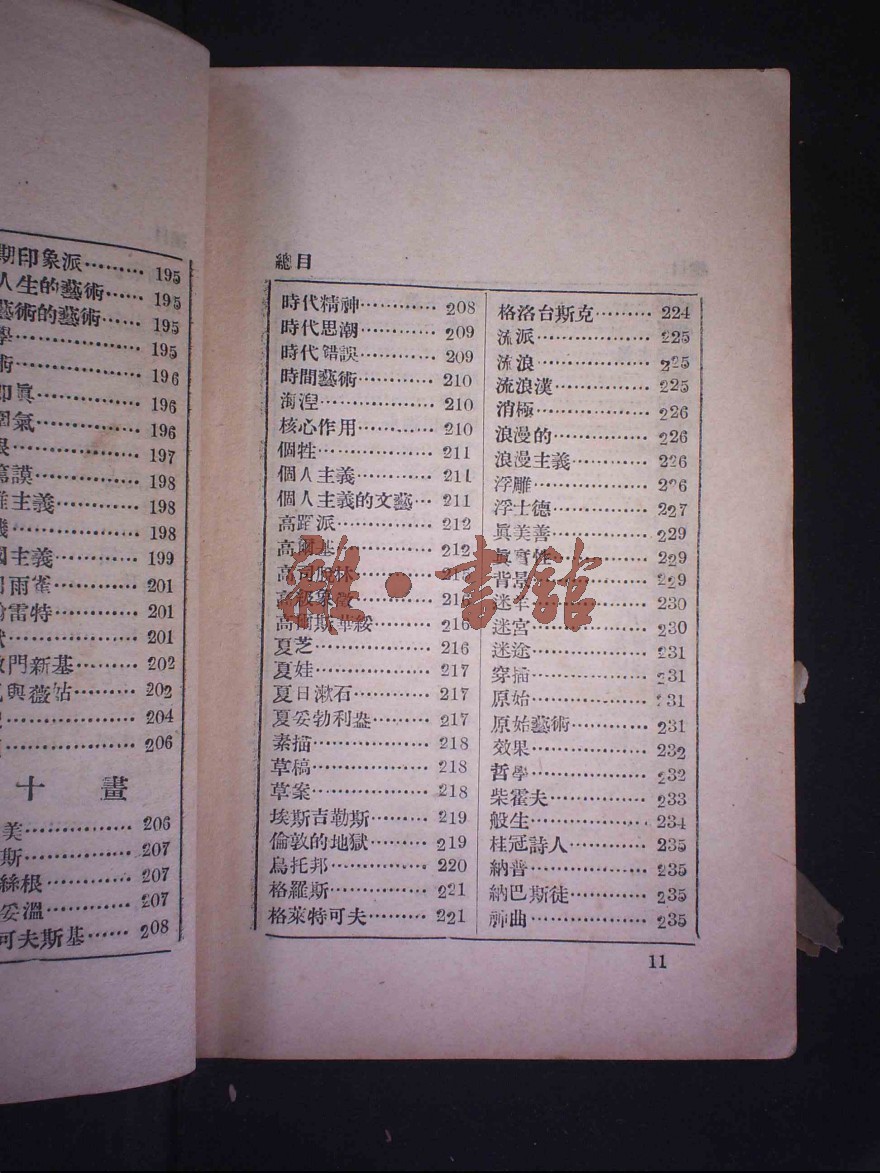 期印象派……… 195
人生的藝術…… 195
藝術的藝術…… 195
學………… 195
術………… 196
即眞………… 196
圍氣………… 196
………… 197
篤謨………… 198
主義……… 198
………… 198
國主義……… 199
雨雀……… 201
雷特……… 201
………… 201
門新基…… 202
與薇姑…… 202
………… 204
………… 206
十畫
美………… 206
斯………… 207
絲根……… 207
妥溫……… 207
可夫斯基…… 208
總目
時代精神………… 208
時代思潮………… 209
時代错誤………… 209
時間藝術………… 210
海湼………… 210
核心作用………… 210
個性………… 211
個人主義………… 211
個人主義的文藝… 211
高蹈派………… 212
高爾基………… 212
高司脫林………
高級象徵………
高爾斯華綏……… 216
夏芝………… 216
夏娃………… 217
夏日漱石……… 217
夏妥勃利盎……… 217
素描………… 218
草稿………… 218
草案………… 218
埃斯吉勒斯……… 219
倫敦的地獄……… 219
烏托邦………… 220
格羅斯………… 221
格萊特可夫……… 221
格洛台斯克……… 224
流派………… 225
流浪………… 225
流浪漢………… 225
消極………… 226
浪漫的………… 226
浪漫主義……… 226
浮雕………… 226
浮士德………… 227
眞美善………… 229
眞實性………… 229
背景………… 229
迷羊………… 230
迷宮………… 230
迷途………… 231
穿插………… 231
原始………… 231
原始藝術……… 231
效果………… 232
哲學………… 232
柴霍夫………… 233
般生………… 234
桂冠詩人……… 235
納普………… 235
納巴斯徒……… 235
神曲………… 235
11
雜·書館